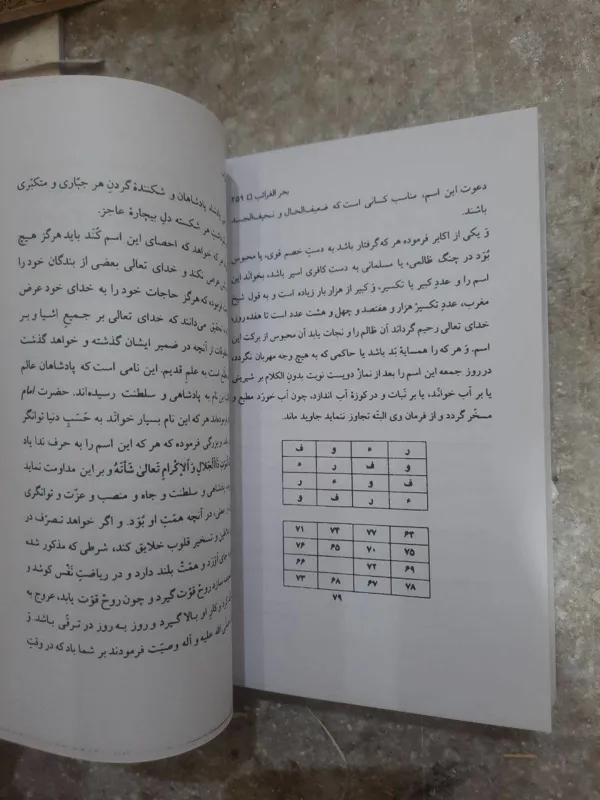 بحر الغرائب □ ۲۵۹
دعوت این اسم، مناسب کسانی است که ضعیف‌الحال و نحیف‌الجسد
باشند.
وَ یکی از اکابر فرموده هر که گرفتار باشد به دستِ خصم قوی، یا محبوس
بُوَد در چنگ ظالمی، یا مسلمانی به دست کافری اسیر باشد، بخوانَد این
اسم را و عددِ کبیر یا تکسیر، وَ کبیر از هزار بار زیاده است و به قول شیخ
مغرب، عددِ تکسیرْ هزار و هفتصد و چهل و هشت عدد است تا هفده روز،
خدای تعالی رحیم گرداند آن ظالم را و نجات یابد آن محبوس از برکت این
اسم. وَ هر که را همسایهٔ بَد باشد یا حاکمی که به هیچ وجه مهربان نگردد،
در روز جمعه این اسم را بعد از نماز دویست نوبت بدونِ الکلام بر شیرینی
یا بر آب خوانَد، یا بر نَبات و در کوزهٔ آب اندازد، چون آب خورَد مطیع و
مسخّر گردد و از فرمان وی البتّه تجاوز ننماید جاوید ماند.
ر ء و ف
و ف ر ء
ف و ء ر
ء ر ف و
۶۴ ۷۷ ۷۴ ۷۱
۷۵ ۷۰ ۶۵ ۷۶
۶۹ ۷۲ ۶۶
۷۸ ۶۷ ۶۸ ۷۳
۷۹
پادشاهان و شکنندهٔ گردنِ هر جبّاری و متکبّری
هر شکسته دلِ بیچارهٔ عاجز.
که خواهد که احصای این اسم کُنَد باید هرگز هیچ
عرض نکند و خدای تعالی بعضی از بندگان خود را
فرموده که هرگز حاجات خود را به خدای خود عرض
تحقیق می‌دانند که خدای تعالی بر جمیعِ اشیا و بر
از آنچه در ضمیر ایشان گذشته و خواهد گذشت
به علمِ قدیم. این نامی است که پادشاهان عالم
نام به پادشاهی و سلطنت رسیده‌اند. حضرت امام
هر که این نام بسیار خوانَد به حَسَبِ دنیا توانگر
بزرگی فرموده که هر که این اسم را به حرف ندا یاد
ذَاالْجَلالِ وَ الاِکرامِ تعالیٰ شأنَهُ و بر این مداومت نماید
پادشاهی و سلطنت و جاه و منصب و عزّت و توانگری
در آنچه همّتِ او بُوَد. و اگر خواهد تصرّف در
تسخیر قلوب خلایق کند، شرطی که مذکور شده
جای آوَرَد و همّت بلند دارد و در ریاضتِ نَفْس کوشد و
روحْ قوّت گیرد و چون روح قوّت یابد، عروج به
او بالا گیرد و روز به روز در ترقّی باشد وَ
الله علیه و آله وصیّت فرمودند بر شما باد که در وقتِ